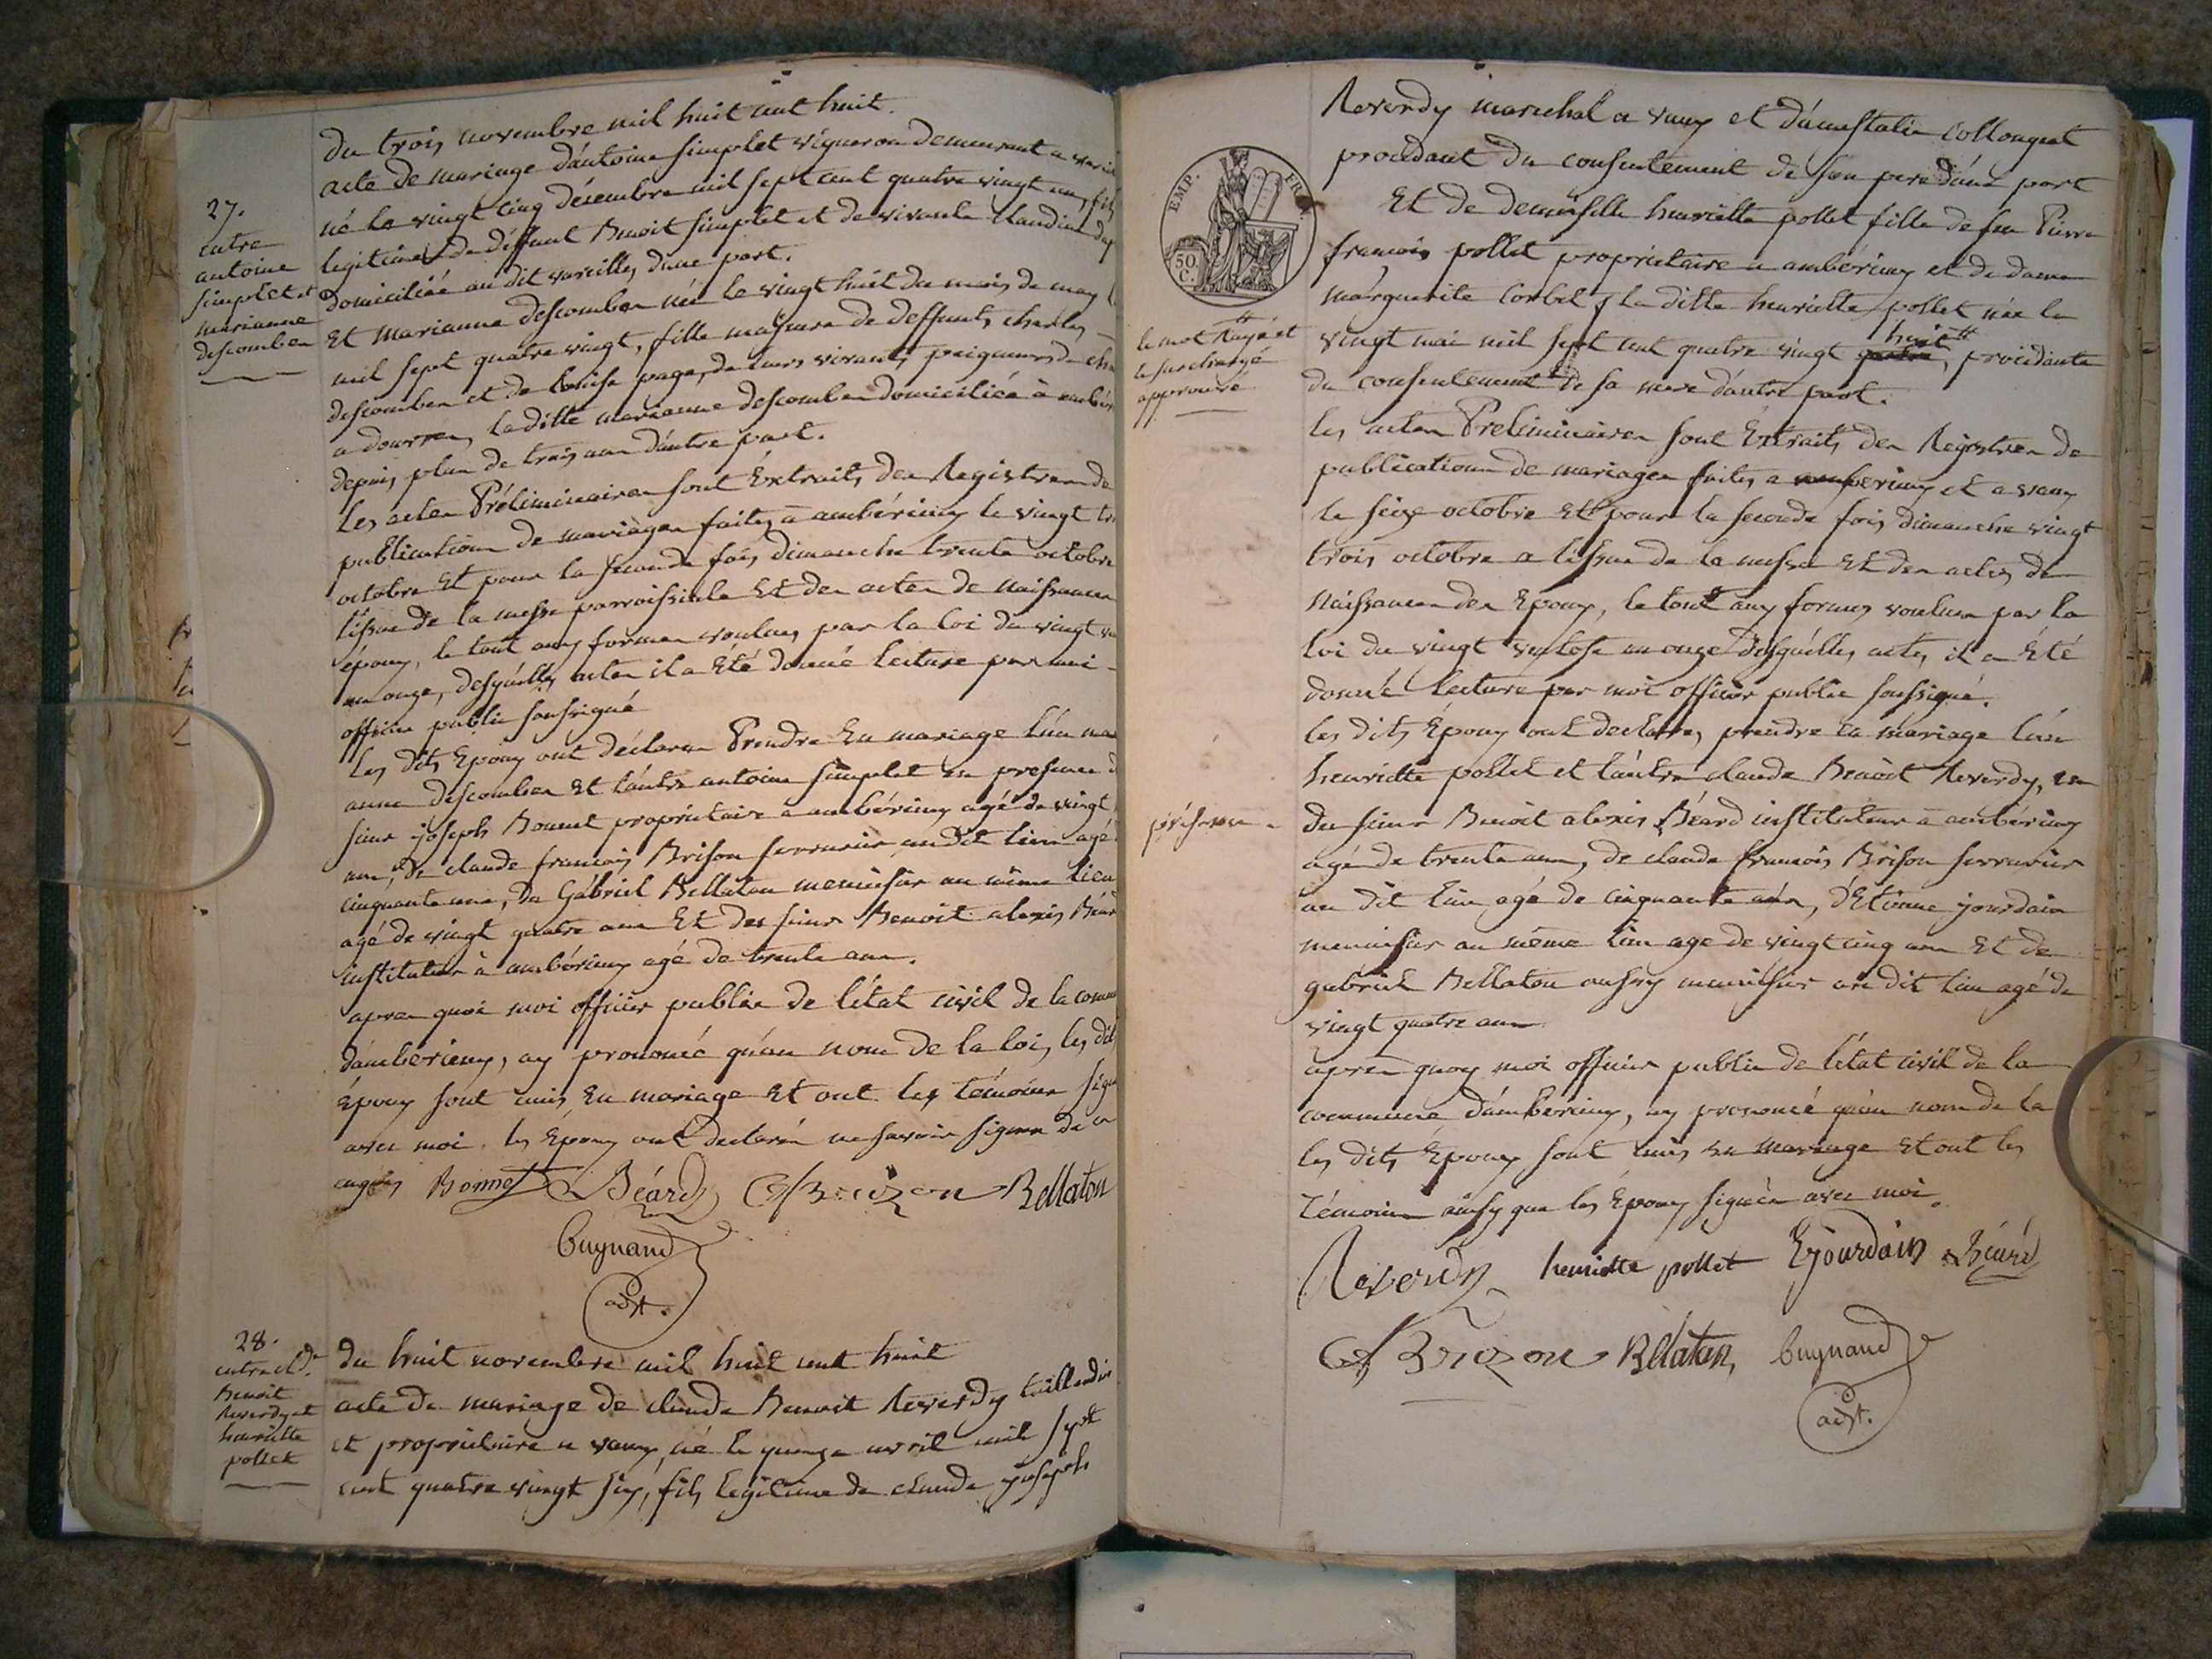 27.
entre
antoine
simplet et
marianne
descomber
du trois novembre mil huit cent huit.
acte de mariage d'antoine simplet vigneron demeurant a
né le vingt cinq décembre mil sept cent quatre vingt un, fils
legitime de déffunt Benoit simplet et de vivante Claudine
domiciliée au dit vareilles d'une part.
Et Marianne descomber née le vingt huit du mois de may
mil sept quatre vingt, fille majeure de deffunts charles
descomber et de louise page, de leurs vivants peigneurs de
a douvres, la ditte marianne descomber domiciliée à
depuis plus de trois ans d'autre part.
Les actes Préliminaires sont Extraits des Registres de
publications de mariages faites à ambérieux le vingt
octobre Et pour la seconde fois dimanche trente octobre
l'issue de la messe parroissiale Et des actes de naissances
époux, le tout aux formes voulues par la loi du vingt
an onze, desquelles actes il a Eté donné lecture par moi
officier public soussigné
Les dits Epoux ont déclarer Prendre En mariage l'un
anne descomber Et l'autre antoine simplet en presence
sieur joseph Bonnet propriétaire a ambérieux agé de vingt
ans, de claude francois Brison serrurier au dit lieu agé
cinquante ans, de Gabriel Bellaton menuisier au même lieu
agé de vingt quatre ans Et des sieur Benoit alexis
instituteur à ambérieux agé de trente ans.
apres quoi moi officier public de l'état civil de la
d'ambérieux, ay prononcé qu'au nom de la loi, les
Epoux sont unis En mariage Et ont les témoins
avec moi. les Epoux ont declarés ne savoir signer de ce
enquis Bonnet Béard CfBrizon Bellaton
Bugnand
adjt.
28.
entre cl.de
Benoit
Reverdy et
henriette
pollet
du huit novembre mil huit cent huit
acte de mariage de claude Benoit Reverdy taillandier
et propriétaire a vaux, né le quinze avril mil sept
cent quatre vingt six, fils legitime de claude joseph
EMP. FR.
50 C.
Reverdy marechal a vaux et d'anastasie Collonget
procédant du consentement de son pere d'une part
Et de demoiselle henriette pollet fille de feu Pierre
francois pollet propriétaire a ambérieux et de dame
marguerite Corbel la ditte henriette pollet née le
huit
vingt mai mil sept cent quatre vingt quatre, procédante
le mot Rayé et
le surchargé
approuvé
du consentement de sa mere d'autre part.
les actes Préliminaires sont Extraits des Registres de
publications de mariages faites a amberieux et a vaux
le seize octobre Et pour la seconde fois dimanche vingt
trois octobre a l'issue de la messe Et des actes de
Naissances des Epoux, le tout aux formes voulues par la
loi du vingt ventose an onze desquelles actes il a Eté
donné lecture par moi officier public soussigné.
les dits Epoux ont declarer prendre en mariage l'un
henriette pollet et l'autre claude Benoit Reverdy, en
présence
du sieur Benoit alexis Béard instituteur à ambérieux
agé de trente ans, de claude francois Brison serrurier
au dit lieu agé de cinquante ans, d'Etienne jourdain
menuisier au même lieu age de vingt cinq ans Et de
gabriel Bellaton aussy menuisier au dit lieu agé de
vingt quatre ans
apres quoy moi officier public de l'état civil de la
commune d'ambérieux, ay prononcé qu'au nom de la
les dits Epoux sont unis en mariage Et ont les
témoins ainsy que les Epoux signés avec moi.
Reverdy henriette pollet Ejourdain Béard
Cf Brizon Bellaton Bugnand
adjt.